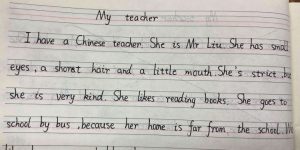 My teacher
I have a Chinese teacher. She is Mr Liu. She has small
eyes, a shorst hair and a little mouth. She's strict, but
she is very kind. She likes reading books. She goes to
school by bus, because her home is far from the school.